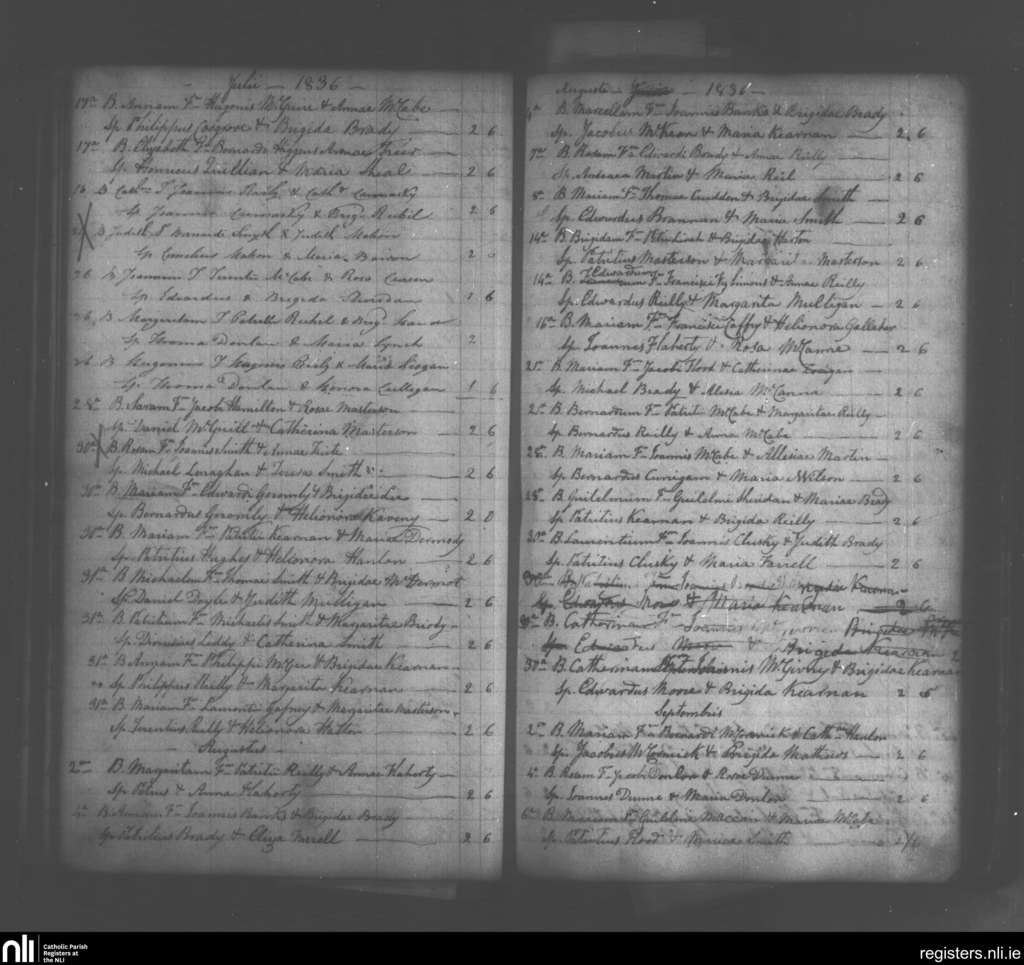 Julii - 1836
17th B. Annam Fm Hugonis McGuire & Annae McCabe
Sp. Philippus Cosgrove & Brigida Brady 2 6
17th B. Elizabeth Fm Bernardi Higgins Annae
Sp. Henricus Quillian & Maria Sheals 2 6
B Cath. F Joannis Reily & Cath.
Sp. Joannes & Brigd. 2 6
B Judith F Bernardi Smyth & Judith Mahon
Sp. Cornelius Mahon & Maria Barron 2
26 B Joannem F Terentii McCabe & Rosa
Sp. Eduardus & Brigida Sheridan 1 6
26 B Margaritam F Patritii & Brig.
Sp. Thomas Donlan & Maria Lynch 2
26 B Hugonem F Hugonis Reily & Maria Scogan
Sp. Thomas Donlan & Honora Culligan 1 6
28th B. Saram Fm Jacobi Hamilton & Rosae Masterson
Sp. Daniel & Catherina Masterson 2 6
30th B. Rosam Fm Joannis Smith & Annae
Sp. Michael Lonaghan & Teresas Smith 2 6
30th B. Mariam Fm Edwardi Gromly & Brigidae Lee
Sp. Bernardus Gromly & Helionora Kaveny 2 0
30th B. Mariam Fm Kearnan & Mariae Dermody
Sp. Patritius Hughes & Helionora Hanlon 2 6
31st B. Michaelem Fm Thomae Smith & Brigidae McDermot
Sp. Daniel Doyle & Judith Mulligan 2 6
31st B. Patritium Fm Michaelis Smith & Margaritae Brody
Sp. Dionisius Liddy & Catherina Smith 2 6
31st B Annam Fm Philippi McGee & Brigidae Kearnan
Sp. Philippus Reilly & Margarita Kearnan 2 6
31st B. Mariam Fm Laurentii Gafney & Margaritae Masterson
Sp. Terentius Reilly & Helionora Hatton 2 6
Augustus
2nd B. Margaritam Fm Patritii Reilly & Annae Flaherty
Sp. Petrus & Anna Flaherty 2 6
B Annam Fm Joannis Banks & Brigidae Brady
Sp. Patritius Brady & Eliza Farrell 2 6
Augusti - 1836 -
B. Marcellam Fm Joannis Banks & Brigidae Brady
Sp. Jacobus McKeon & Maria Kearnan 2 6
7th B. Rosam Fm Edwardi Brady & Annae Reilly
Sp. Andreas Martin & Maria 2 6
8th B. Mariam Fm Thomae Cudden & Brigidae Smith
Sp. Edwardus Brannan & Maria Smith 2 6
14th B Brigidam Fm & Brigidae Harton
Sp. Patritius Masterson & Margarita Masterson 2 6
14th B. Edwardum Fm Francisci Fitz Simons & Annae Reilly
Sp. Edwardus Reilly & Margarita Mulligan 2 6
16th B. Mariam Fm Francisci Caffry & Helionora Gallaher
Sp. Joannes Flaherty & Rosa McCanna 2 6
21st B. Mariam Fm Jacobi Flood & Catherinae Corigan
Sp. Michael Brady & Alesia McCanna 2 6
21st B Bernardum Fm Patritii McCabe & Margaritae Reilly
Sp. Bernardus Reilly & Anna McCabe 2 6
28th B. Mariam Fm Joannis McCabe & Allesiae Martin
Sp. Bernardus Corrigan & Maria Wilson 2 6
28th B Guilelmum Fm Guilelmi Sheridan & Mariae Brady
Sp. Patritius Kearnan & Brigida Reilly 2 6
30th B Laurentium Fm Joannis Clusky & Judith Brady
Sp. Patritius Clusky & Maria Farrell 2 6
30th Kearnan
Sp. Edwardus Moore & Maria Kearnan 2 6
30th B. Catherinam Fm Joannis Brigidae
Sp. Edwardus Moore & Brigida Kearnan 2
30th B. Catherinam Fm Joannis McGivny & Brigidae Kearnan
Sp. Edwardus Moore & Brigida Kearnan 2 6
Septembris
2nd B. Mariam Fm Bernardi McCormick & Cath. Hanlon
Sp. Jacobus McCormick & Brigida Mathews 2 6
4th B. Rosam F Jacobi Donlon & Rosae Dunne
Sp. Joannes Dunne & Maria Donlon 2 6
6th B. Mariam Fm Guilelmi & Mariae McCabe
Sp. Patritius Flood & Maria Smith 2/6
nli
Catholic Parish
Registers at
the NLI
registers.nli.ie